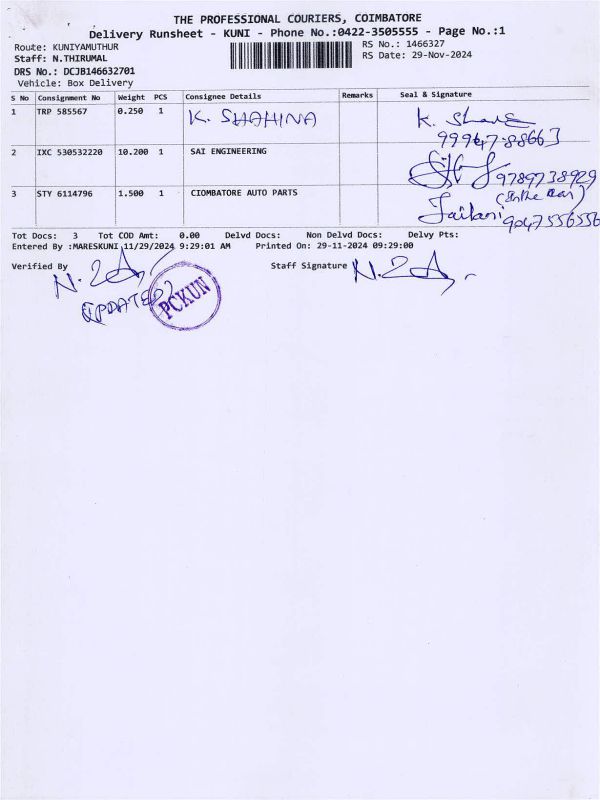 THE PROFESSIONAL COURIERS, COIMBATORE
Delivery Runsheet - KUNI - Phone No.:0422-3505555 - Page No.:1
Route: KUNIYAMUTHUR RS No.: 1466327
Staff: N.THIRUMAL RS Date: 29-Nov-2024
DRS No.: DCJB146632701
Vehicle: Box Delivery
S No Consignment No Weight PCS Consignee Details Remarks Seal & Signature
1 TRP 585567 0.250 1 K. SHAHINA K.
99947-88663
2 IXC 530532220 10.200 1 SAI ENGINEERING
9789738929
3 STY 6114796 1.500 1 CIOMBATORE AUTO PARTS
Jailani 9047556556
Tot Docs: 3 Tot COD Amt: 0.00 Delvd Docs: Non Delvd Docs: Delvy Pts:
Entered By :MARESKUNI,11/29/2024 9:29:01 AM Printed On: 29-11-2024 09:29:00
Verified By Staff Signature
UPDATED
PCKUN